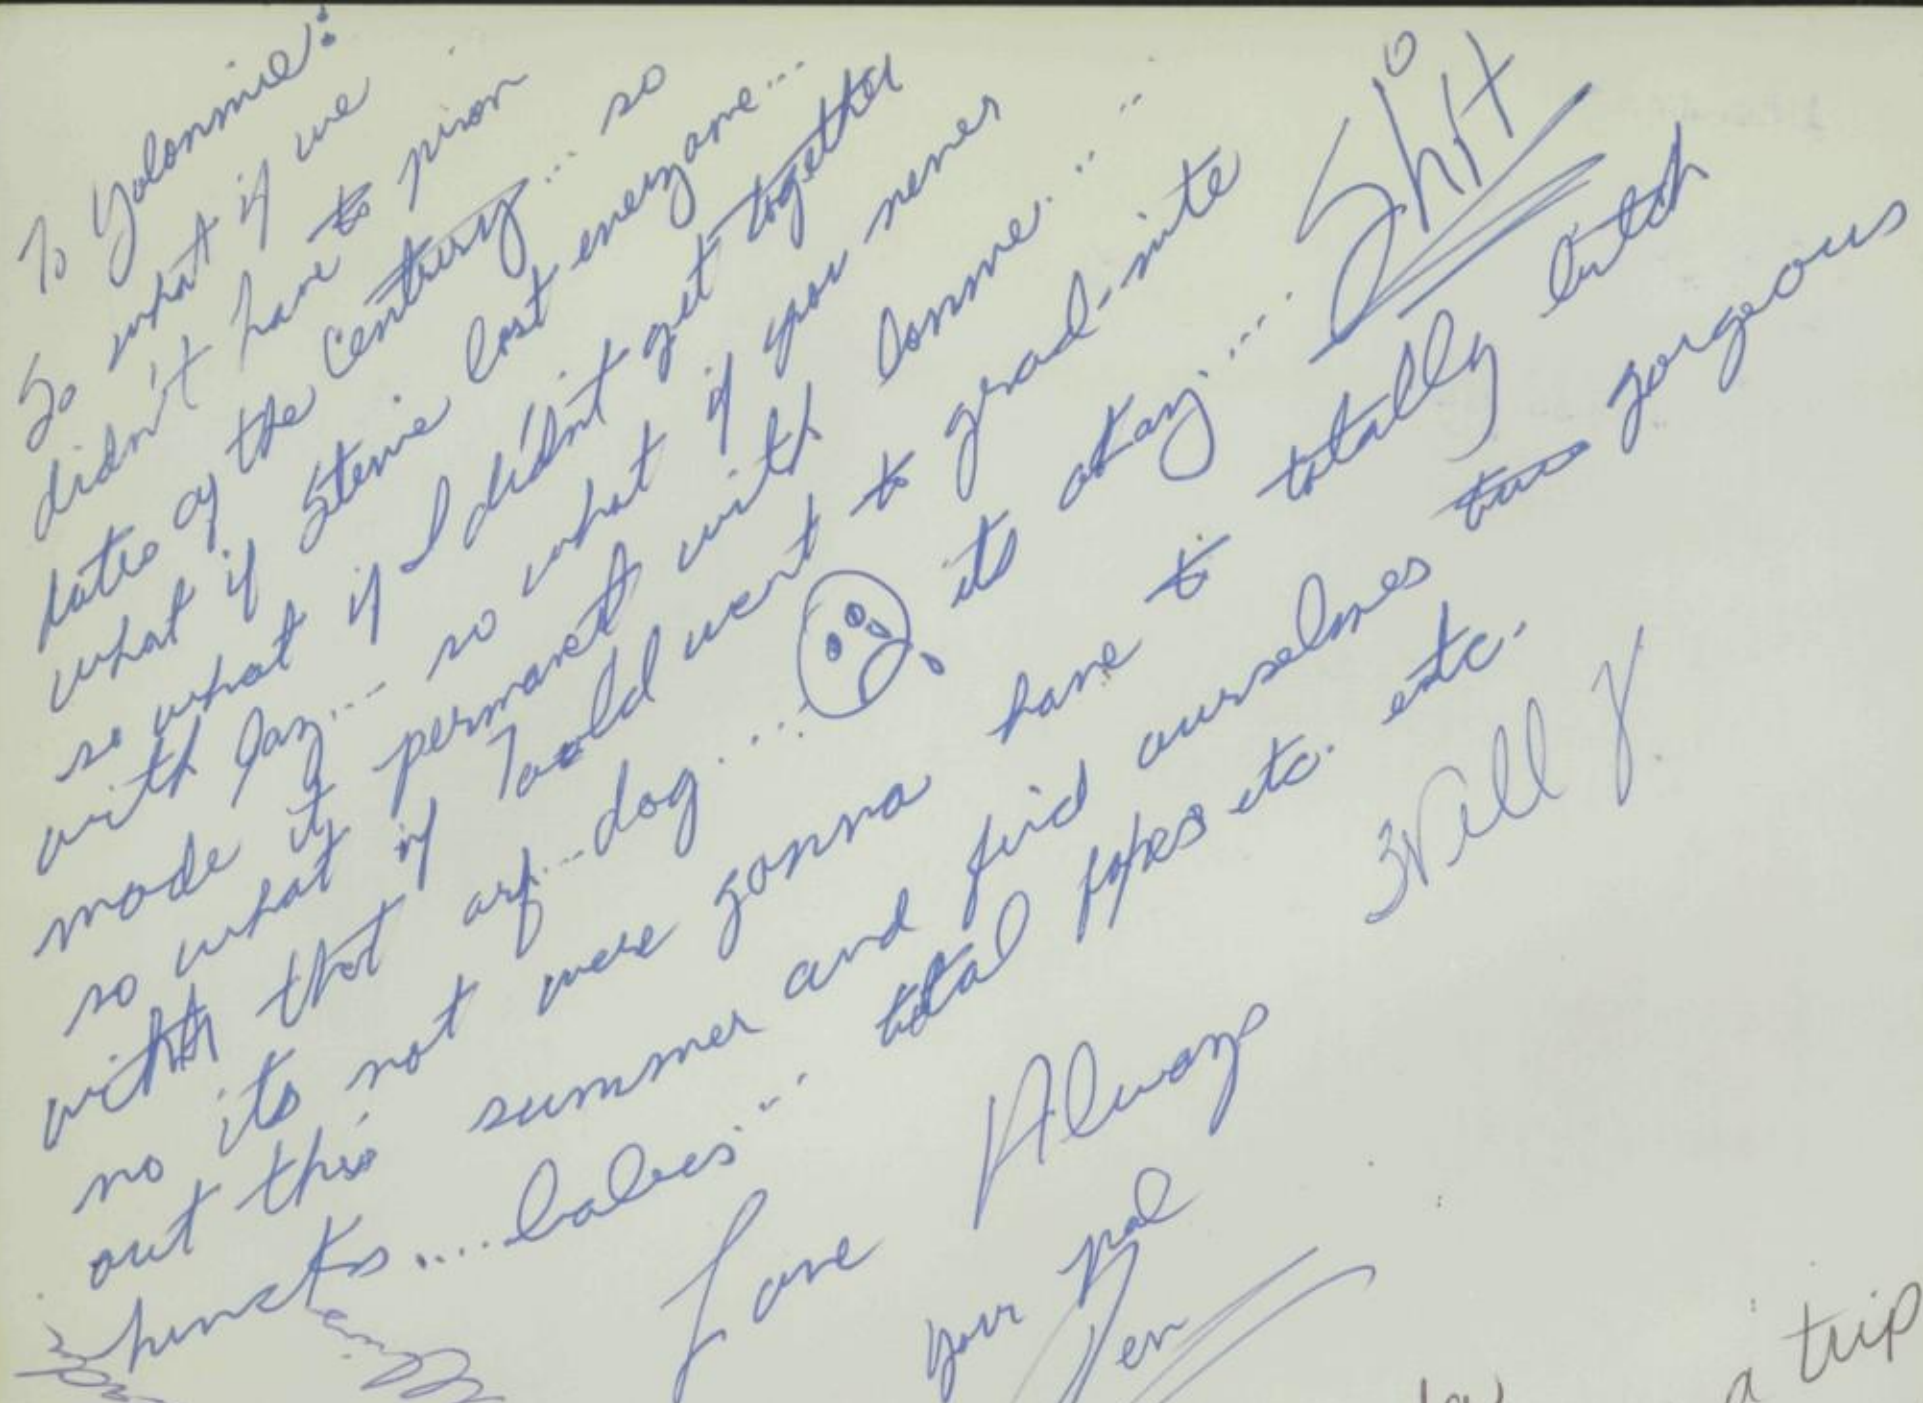 To Yolonnie:
So what if we
didn't have to
dates of the Century... so
what if Stevie lost everyone...
so what if I didn't get together
with Jay... so what if you never
made it permanet with Lonnie.....
so what if went to grad-nite
with that arf...dog..... its okay.... Shit
no its not were gonna have to totally butch
out this summer and find ourselves two gorgeous
huncks....babes... total foxes etc. estc.
Love Always
your pal
Jen
a trip